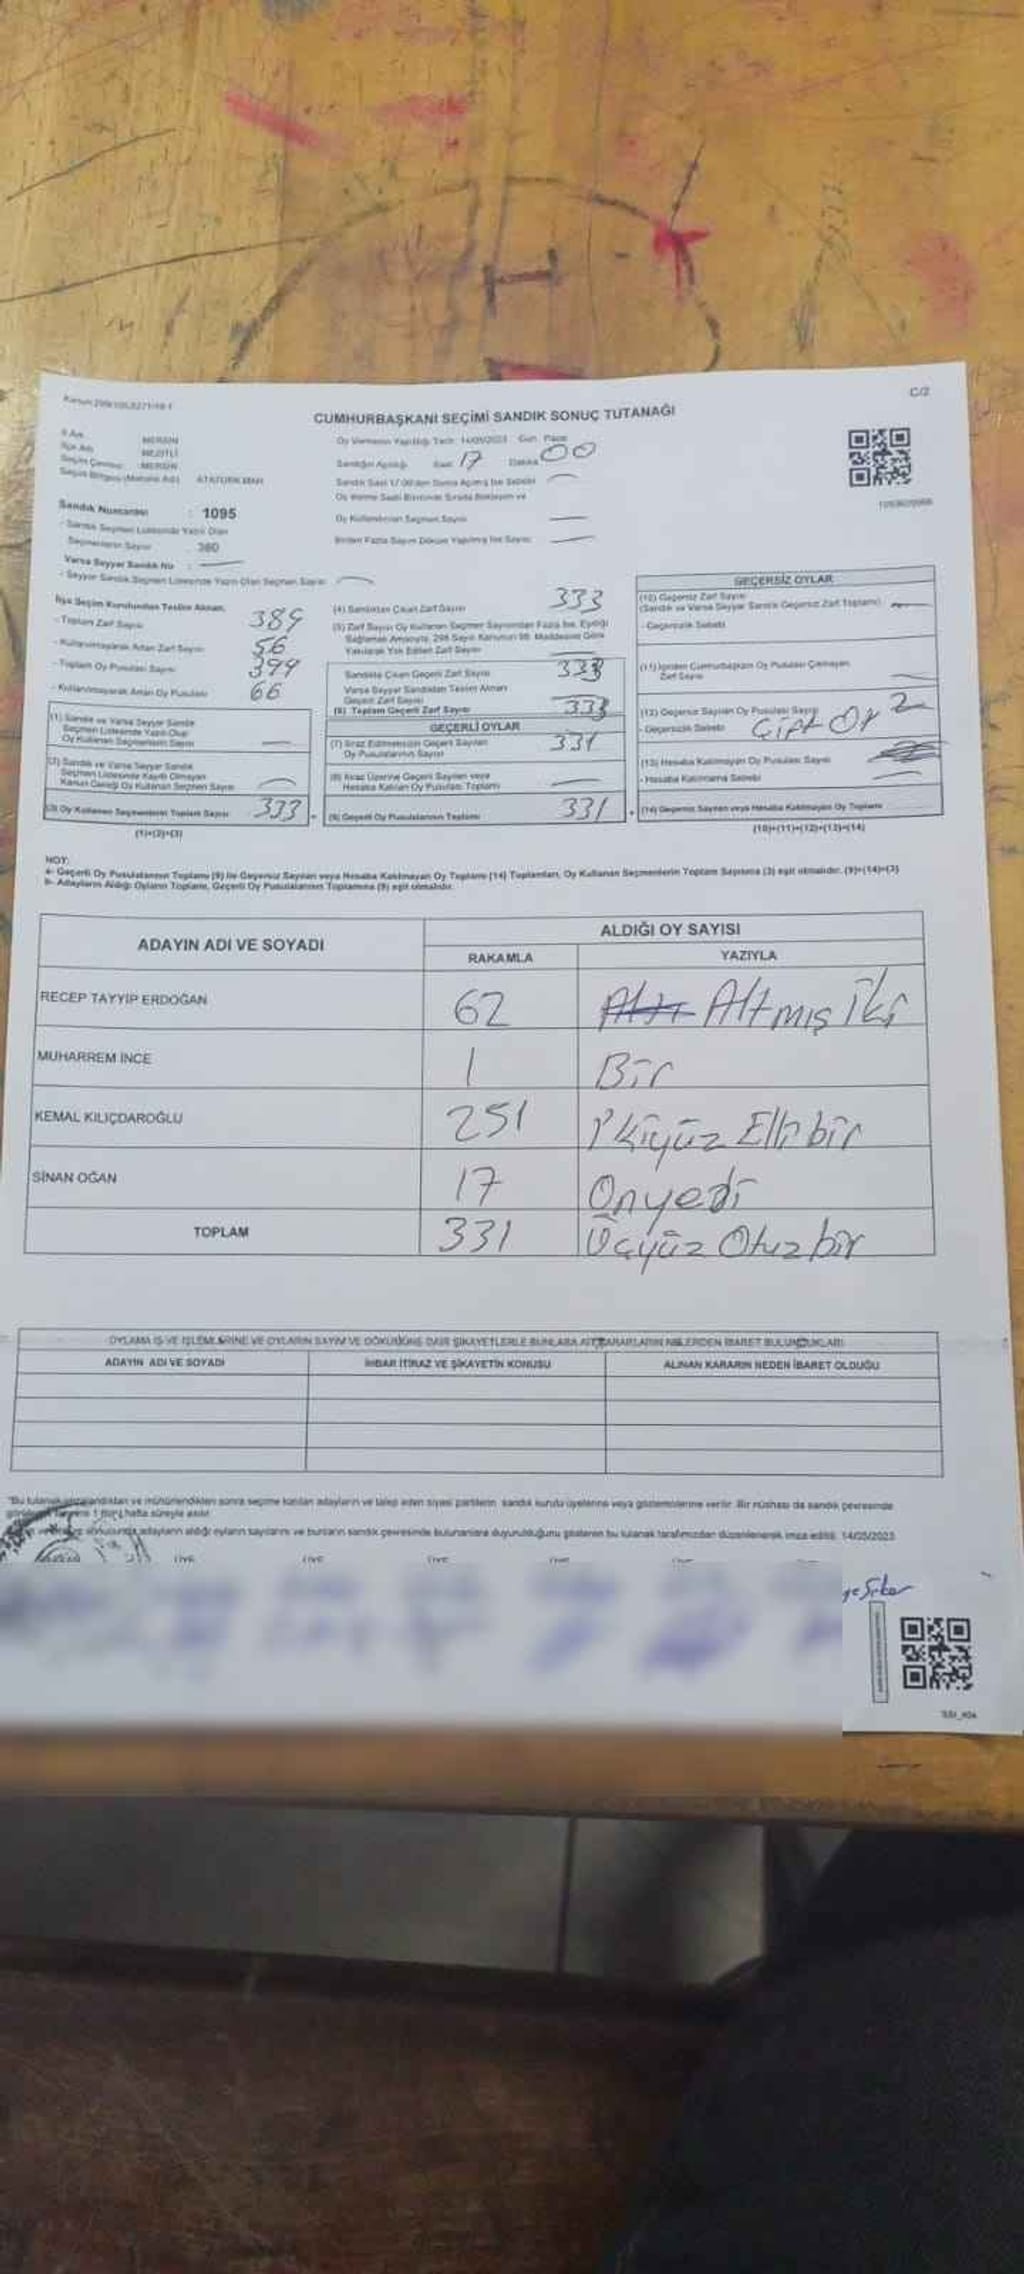 C/2
CUMHURBAŞKANI SEÇİMİ SANDIK SONUÇ TUTANAĞI
İl Adı MERSİN
İlçe Adı MEZİTLİ
Seçim Çevresi MERSİN
Seçim Bölgesi (Mahalle Adı) ATATÜRK MAH
Sandık Numarası : 1095
- Sandık Seçmen Listesinde Yazılı Olan
Seçmenlerin Sayısı 380
Varsa Seyyar Sandık No :
- Seyyar Sandık Seçmen Listesinde Yazılı Olan Seçmen Sayısı
Oy Vermenin Yapıldığı Tarih 14/05/2023 Gün Pazar
Sandığın Açıldığı Saat 17 Dakika 00
Sandık Saati 17:00'den Sonra Açılmış İse Sebebi
Oy Verme Saati Bitiminde Sırada Bekleyen ve
Oy Kullandırılan Seçmen Sayısı
Birden Fazla Sayım Döküm Yapılmış İse Sayısı
İlçe Seçim Kurulundan Teslim Alınan,
- Toplam Zarf Sayısı 389
- Kullanılmayarak Artan Zarf Sayısı 56
- Toplam Oy Pusulası Sayısı 399
- Kullanılmayarak Artan Oy Pusulası 66
(1) Sandık ve Varsa Seyyar Sandık
Seçmen Listesinde Yazılı Olup
Oy Kullanan Seçmenlerin Sayısı
(2) Sandık ve Varsa Seyyar Sandık
Seçmen Listesinde Kayıtlı Olmayan
Kanun Gereği Oy Kullanan Seçmen Sayısı
(3) Oy Kullanan Seçmenlerin Toplam Sayısı 333
(1)+(2)=(3)
(4) Sandıktan Çıkan Zarf Sayısı 333
(5) Zarf Sayısı Oy Kullanan Seçmen Sayısından Fazla İse, Eşitliği
Sağlamak Amacıyla, 298 Sayılı Kanunun 98. Maddesine Göre
Yakılarak Yok Edilen Zarf Sayısı
Sandıkta Çıkan Geçerli Zarf Sayısı 333
Varsa Seyyar Sandıktan Teslim Alınan
Geçerli Zarf Sayısı
(6) Toplam Geçerli Zarf Sayısı 333
GEÇERLİ OYLAR
(7) İtiraz Edilmeksizin Geçerli Sayılan
Oy Pusulalarının Sayısı 331
(8) İtiraz Üzerine Geçerli Sayılan veya
Hesaba Katılan Oy Pusulası Toplamı
(9) Geçerli Oy Pusulalarının Toplamı 331
GEÇERSİZ OYLAR
(10) Geçersiz Zarf Sayısı
(Sandık ve Varsa Seyyar Sandık Geçersiz Zarf Toplamı)
- Geçersizlik Sebebi
(11) İçinden Cumhurbaşkanı Oy Pusulası Çıkmayan
Zarf Sayısı
(12) Geçersiz Sayılan Oy Pusulası Sayısı 2
- Geçersizlik Sebebi Çift Oy
(13) Hesaba Katılmayan Oy Pusulası Sayısı
- Hesaba Katılmama Sebebi
(14) Geçersiz Sayılan veya Hesaba Katılmayan Oy Toplamı
(10)+(11)+(12)+(13)=(14)
NOT:
a- Geçerli Oy Pusulalarının Toplamı (9) ile Geçersiz Sayılan veya Hesaba Katılmayan Oy Toplamı (14) Toplamları, Oy Kullanan Seçmenlerin Toplam Sayısına (3) eşit olmalıdır. (9)+(14)=(3)
b- Adayların Aldığı Oyların Toplamı, Geçerli Oy Pusulalarının Toplamına (9) eşit olmalıdır.
ADAYIN ADI VE SOYADI ALDIĞI OY SAYISI
RAKAMLA YAZIYLA
RECEP TAYYİP ERDOĞAN 62 Altmış İki
MUHARREM İNCE 1 Bir
KEMAL KILIÇDAROĞLU 251 İkiyüz Ellibir
SİNAN OĞAN 17 Onyedi
TOPLAM 331 Üçyüz Otuzbir
OYLAMA İŞ VE İŞLEMLERİNE VE OYLARIN SAYIM VE DÖKÜMÜNE DAİR ŞİKAYETLERLE BUNLARA AİT KARARLARIN NELERDEN İBARET BULUNDUKLARI
ADAYIN ADI VE SOYADI İHBAR İTİRAZ VE ŞİKAYETİN KONUSU ALINAN KARARIN NEDEN İBARET OLDUĞU
"Bu tutanak imzalandıktan ve mühürlendikten sonra seçime katılan adayların ve talep eden siyasi partilerin sandık kurulu üyelerine veya gözlemcilerine verilir. Bir nüshası da sandık çevresinde
1 (bir) hafta süreyle asılır.
sonucunda adayların aldığı oyların sayılarını ve bunların sandık çevresinde bulunanlara duyurulduğunu gösteren bu tutanak tarafımızdan düzenlenerek imza edildi. 14/05/2023
ÜYE ÜYE ÜYE ÜYE ÜYE